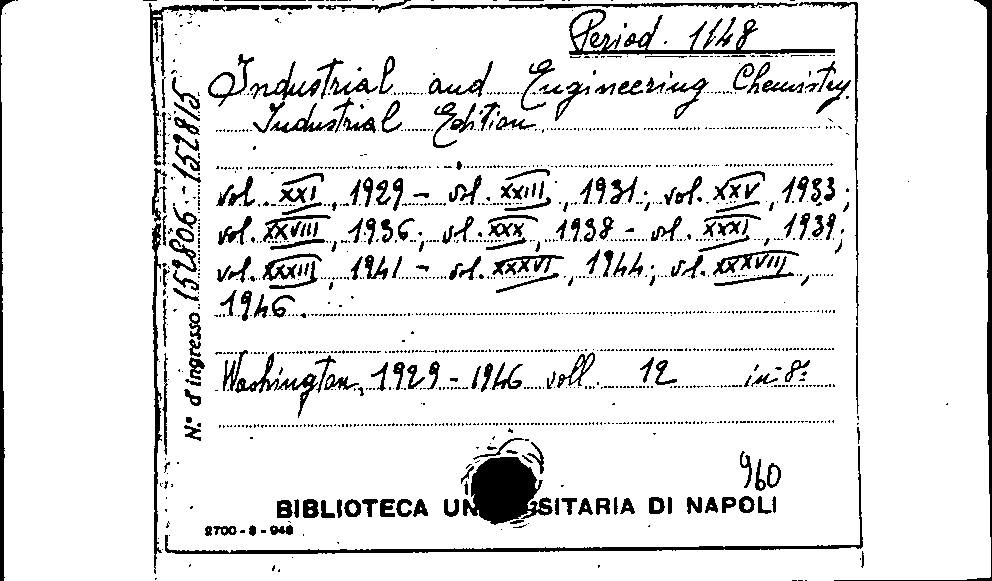 Period. 1148
Industrial and Engineering Chemistry.
Industrial Edition.
vol. XXI, 1929 - vol. XXIII, 1931; vol. XXV, 1933;
vol. XXVIII, 1936; vol. XXX, 1938 - vol. XXXI, 1939;
vol. XXXIII, 1941 - vol. XXXVI, 1944; vol. XXXVIII,
1946.
Washington, 1929 - 1946 voll. 12 in-8º
N.° d'ingresso 152806 - 152815
960
BIBLIOTECA UN SITARIA DI NAPOLI
2700 - 8 - 948